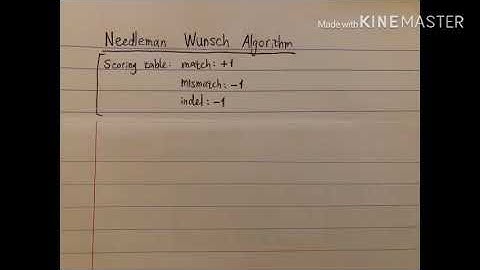 Made with KINEMASTER
Needleman Wunsch Algorithm
Scoring table: match: +1
mismatch: -1
indel: -1